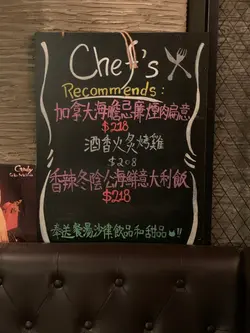 Chef's
Recommends:
加拿大海膽忌廉煙肉扁意
$218
酒香火炙烤雞
$208
香辣冬陰公海鮮意大利飯
$218
奉送餐湯沙律飲品和甜品!!